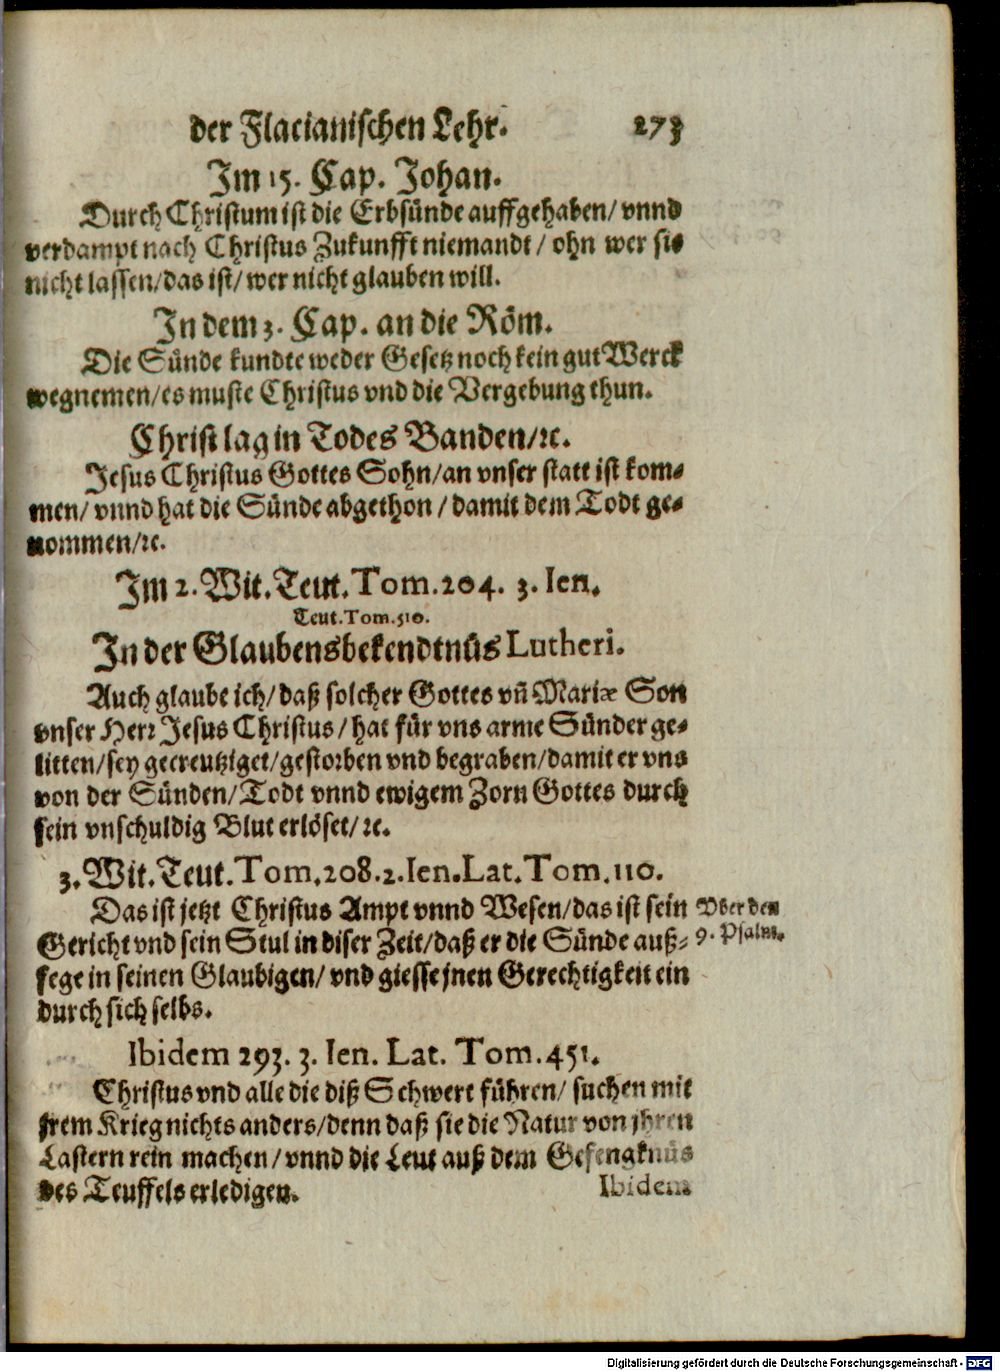 der Flacianischen Lehr. 273
Im 15. Cap. Johan.
Durch Christum ist die Erbsünde auffgehaben/ vnnd
verdampt nach Christus Zukunfft niemandt / ohn wer sie
nicht lassen/das ist/ wer nicht glauben will.
In dem 3. Cap. an die Röm.
Die Sünde kundte weder Gesetz noch kein gut Werck
wegnemen/es muste Christus vnd die Vergebung thun.
Christ lag in Todes Banden/ꝛc.
Jesus Christus Gottes Sohn/an vnser statt ist kom⸗
men/ vnnd hat die Sünde abgethon / damit dem Todt ge⸗
nommen/ꝛc.
Im 2. Wit. Teut. Tom. 204. 3. Ien.
Teut. Tom. 510.
In der Glaubensbekendtnüs Lutheri.
Auch glaube ich/ daß solcher Gottes vñ Mariæ Son
vnser Herꝛ Jesus Christus / hat für vns arme Sünder ge⸗
litten/sey gecreutziget/gestorben vnd begraben/damit er vns
von der Sünden/Todt vnnd ewigem Zorn Gottes durch
sein vnschuldig Blut erlöset/ ꝛc.
3. Wit. Teut. Tom. 208. 2. Ien. Lat. Tom. 110.
Das ist jetzt Christus Ampt vnnd Wesen/das ist sein
Gericht vnd sein Stul in diser Zeit/daß er die Sünde auß⸗
fege in seinen Glaubigen/ vnd giesse jnen Gerechtigkeit ein
durch sich selbs.
Vber den
9. Psalm.
Ibidem 293. 3. Ien. Lat. Tom. 451.
Christus vnd alle die diß Schwert führen/ suchen mit
jrem Krieg nichts anders/denn daß sie die Natur von jhren
Lastern rein machen/ vnnd die Leut auß dem Gefengknüs
des Teuffels erledigen.
Ibidem
Digitalisierung gefördert durch die Deutsche Forschungsgemeinschaft - DFG